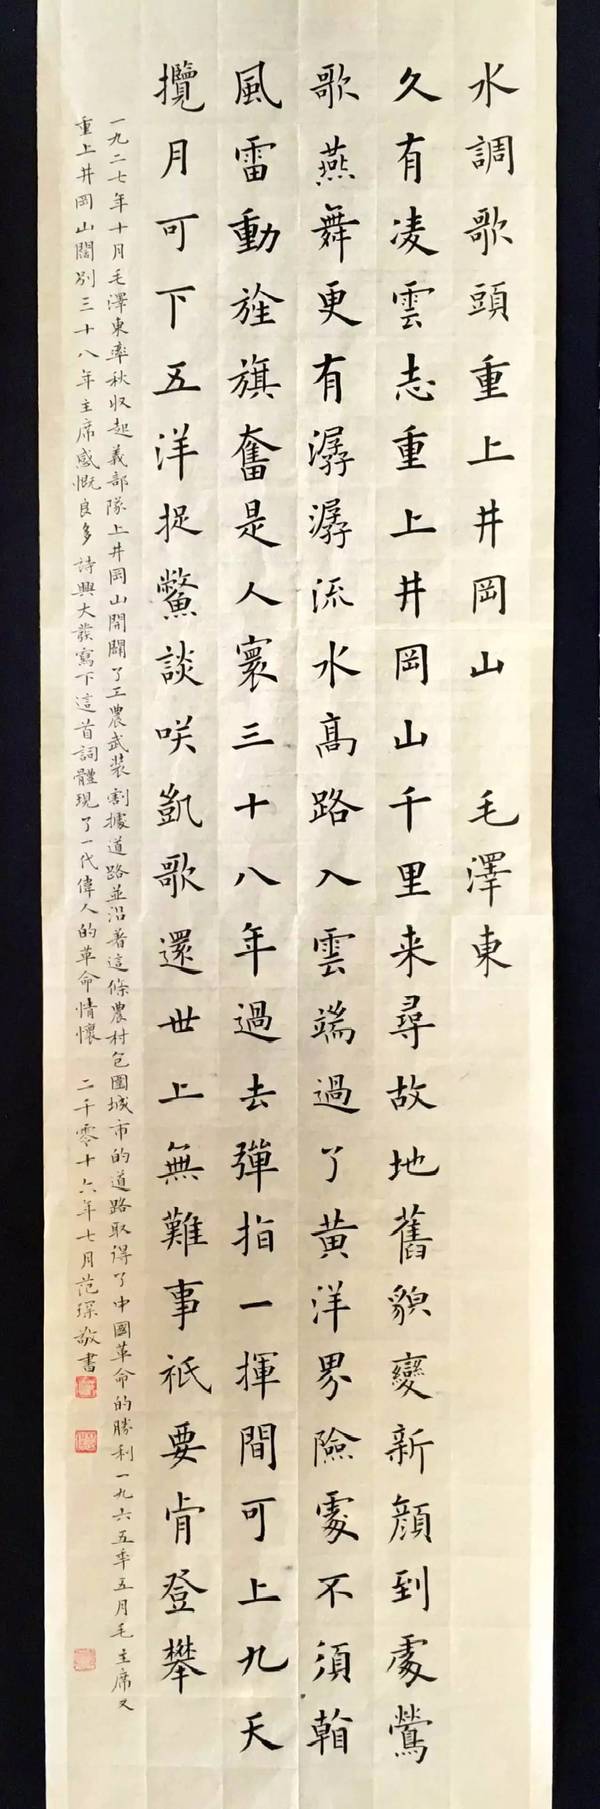 水調歌頭重上井岡山　毛澤東
久有凌雲志重上井岡山千里来尋故地舊貌變新顔到處鶯
歌燕舞更有潺潺流水高路入雲端過了黄洋界險處不須看
風雷動旌旗奮是人寰三十八年過去彈指一揮間可上九天
攬月可下五洋捉鱉談咲凱歌還世上無難事衹要肯登攀
一九二七年十月毛澤東率秋収起義部隊上井岡山開闢了工農武裝割據道路並沿著這條農村包圍城市的道路取得了中國革命的勝利一九六五年五月毛主席又
重上井岡山闊别三十八年主席感慨良多詩興大發寫下這首詞體現了一代偉人的革命情懷　二千零十六年七月范琛敬書